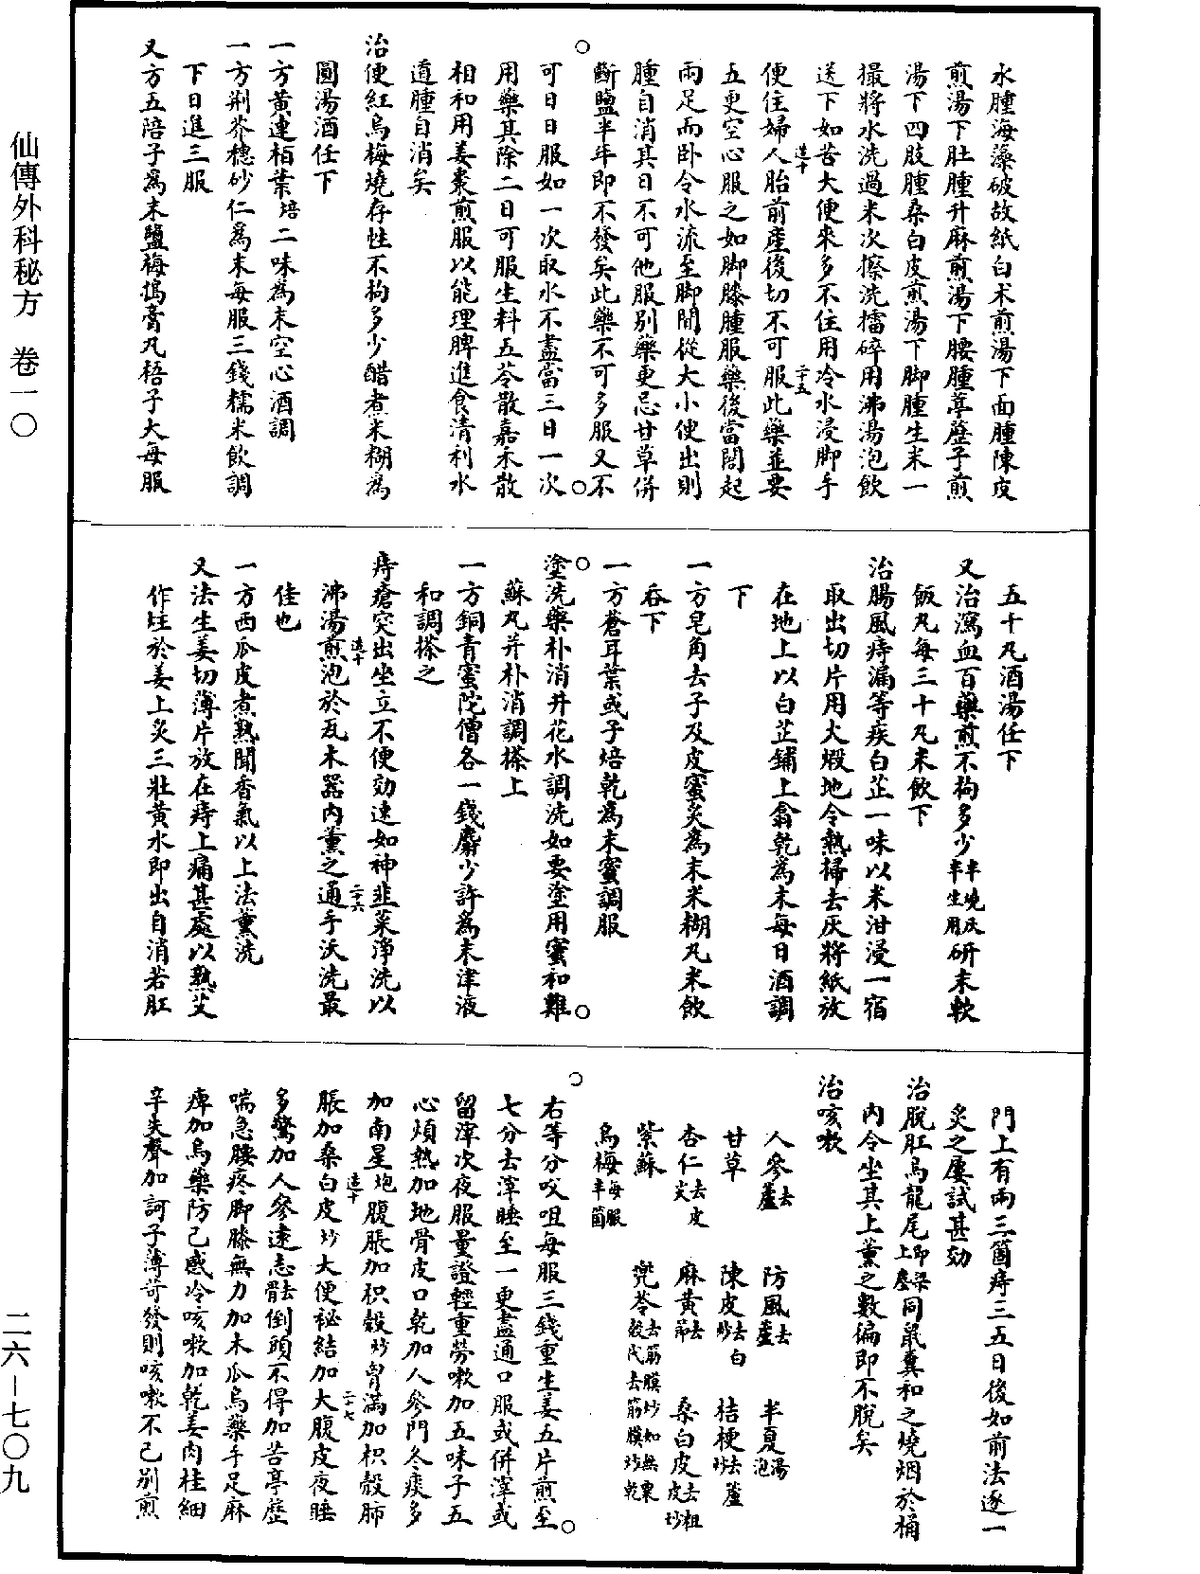 水腫海藻破故紙白朮煎湯下面腫陳皮
煎湯下肚腫升麻煎湯下腰腫葶藶子煎
湯下四肢腫桑白皮煎湯下脚腫生米一
撮將水洗過米次擦洗擂碎用沸湯泡飲
送下如苦大便來多不住用冷水浸脚手
便住婦人胎前產後切不可服此藥並要
五更空心服之如脚膝腫服藥後當閣起
兩足而卧令水流至脚間從大小便出則
腫自消其日不可他服别藥更忌甘草併
斷鹽半年即不發矣此藥不可多服又不
可日日服如一次取水不盡當三日一次
用藥其除二日可服生料五苓散嘉禾散
相和用姜棗煎服以能理脾進食清利水
道腫自消矣
治便紅烏梅燒存性不拘多少醋煮米糊為
圓湯酒任下
一方黃連栢葉焙二味為末空心酒調
一方荆芥穗砂仁為末每服三錢糯米飲調
下日進三服
又方五陪子為末鹽梅搗膏丸梧子大每服
五十丸酒湯任下
又治瀉血百藥煎不拘多少半燒灰半生用研末軟
飯丸每三十丸米飲下
治腸風痔漏等疾白芷一味以米泔浸一宿
取出切片用火煅地令熱掃去灰將紙放
在地上以白芷鋪上翕乾為末每日酒調
下
一方皂角去子及皮蜜炙為末米糊丸米飲
吞下
一方蒼耳葉或子焙乾為末蜜調服
塗洗藥朴消井花水調洗如要塗用蜜和雞
蘇丸并朴消調搽上
一方銅青蜜陀僧各一錢麝少許為末津液
和調搽之
痔瘡突出坐立不便効速如神韭菜淨洗以
沸湯煎泡於瓦木器内薰之通手沃洗最
佳也
一方西瓜皮煮熟聞香氣以上法薰洗
又法生姜切薄片放在痔上痛甚處以熟艾
作炷於姜上炙三壯黃水即出自消若肛
門上有兩三箇痔三五日後如前法逐一
炙之屢試甚効
治脫肛烏龍尾即梁上塵同鼠糞和之燒烟於桶
内令坐其上薰之數徧即不脫矣
治咳嗽
人參去蘆 防風去蘆 半夏湯泡
甘草 陳皮去白炒 桔梗去蘆炒
杏仁去皮尖 麻黃去節 桑白皮去粗皮炒
紫蘇 兜苓去筋膜炒如無粟殼代去筋膜炒乾
烏梅每服半箇
右等分㕮咀每服三錢重生姜五片煎至
七分去滓睡至一更盡通口服或併滓或
留滓次夜服量證輕重勞嗽加五味子五
心煩熱加地骨皮口乾加人參門冬痰多
加南星炮腹脹加枳殼炒胷滿加枳殼肺
脹加桑白皮炒大便秘結加大腹皮夜睡
多驚加人參遠志去骨倒頭不得加苦葶藶
喘急腰疼脚膝無力加木瓜烏藥手足麻
痺加烏藥防己感冷咳嗽加乾姜肉桂細
辛失聲加訶子薄苛發則咳嗽不己别煎
造十
二十五
造十
二十六
造十
二十七
仙傳外科秘方 卷一〇
二六－七〇九